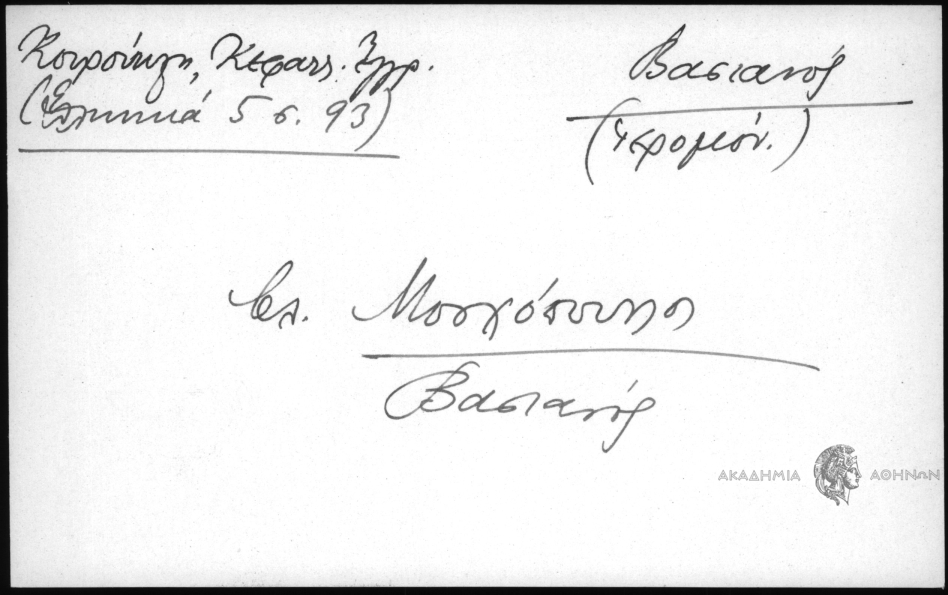 Κουρούκλη, Κεφαλλ. Έγγρ.
(Ελληνικά 5 σ. 93)
Βασιανός
(ιερομόν.)
βλ. Μοσχόπουλος
Βασιανός
ΑΚΑΔΗΜΙΑ ΑΘΗΝΩΝ